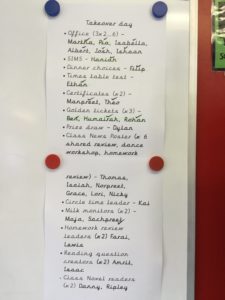 Takeover day
• Office (3x2...6) -
Martha, Pia, Isabella,
Albert, Josh, Ishaan
• SIMS - Haniah
• Dinner choices - Filip
• Times table test -
Ethan
• Certificates (x2) -
Manpreet, Theo
• Golden tickets (x3) -
Ben, Humairah, Rohan
• Prize draw - Dylan
• Class News Poster (x 6
shared review, dance
workshop, homework
review) - Thomas,
Isaiah, Norpreet,
Grace, Lori, Nicky
• Circle time leader - Kai
• Milk monitors (x2) -
Maja, Sachpreet
• Homework review
leaders (x2) Farai,
Lewis
• Reading question
creators (x2) Amrit,
Isaac
• Class Novel readers
(x2) Danny, Ripley